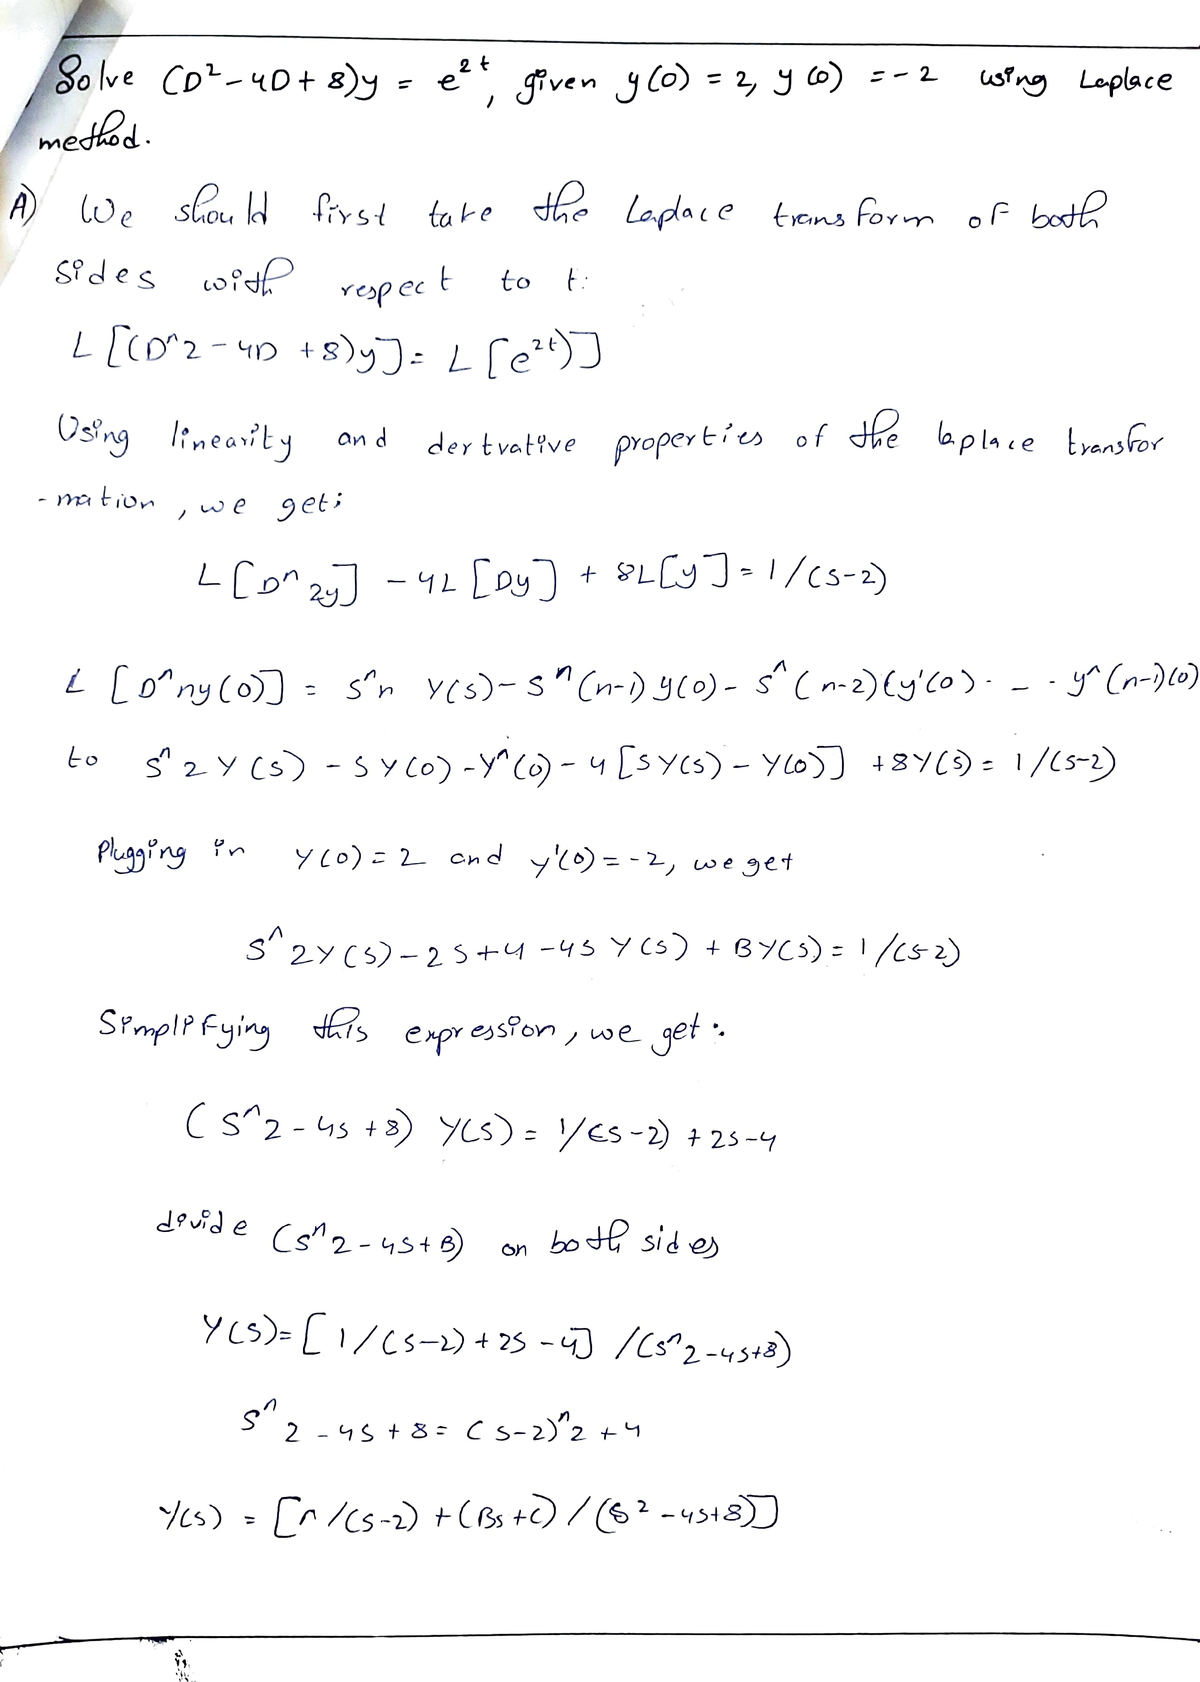 Solve (D²-4D+8)y = e²ᵗ, given y(0) = 2, y(0) = -2 using Laplace
method.
A) We should first take the Laplace transform of both
sides with respect to t:
L[(D^2-4D+8)y] = L[e²ᵗ)]
Using linearity and dertvative properties of the laplace transfor
-mation, we get;
L[D^2y] - 4L[Dy] + 8L[y] = 1/(s-2)
L[D^ny(0)] = s^n Y(s)-s^(n-1)y(0)-s^(n-2)(y'(0)- - - y^(n-1)(0)
to s^2Y(s) - sy(0)-y^(0)-4[sY(s)-Y(0)] +8Y(s) = 1/(s-2)
Plugging in Y(0)=2 and y'(0)=-2, we get
s^2Y(s)-2s+4-4sY(s)+BY(s)=1/(s-2)
Simplifying this expression, we get:
(s^2-4s+8) Y(s) = 1/(s-2) + 2s-4
divide (s^2-4s+8) on both sides
Y(s)=[1/(s-2)+2s-4]/(s^2-4s+8)
s^2-4s+8=(s-2)^2+4
Y(s) = [n/(s-2)+(Bs+C)/(s²-4s+8)]